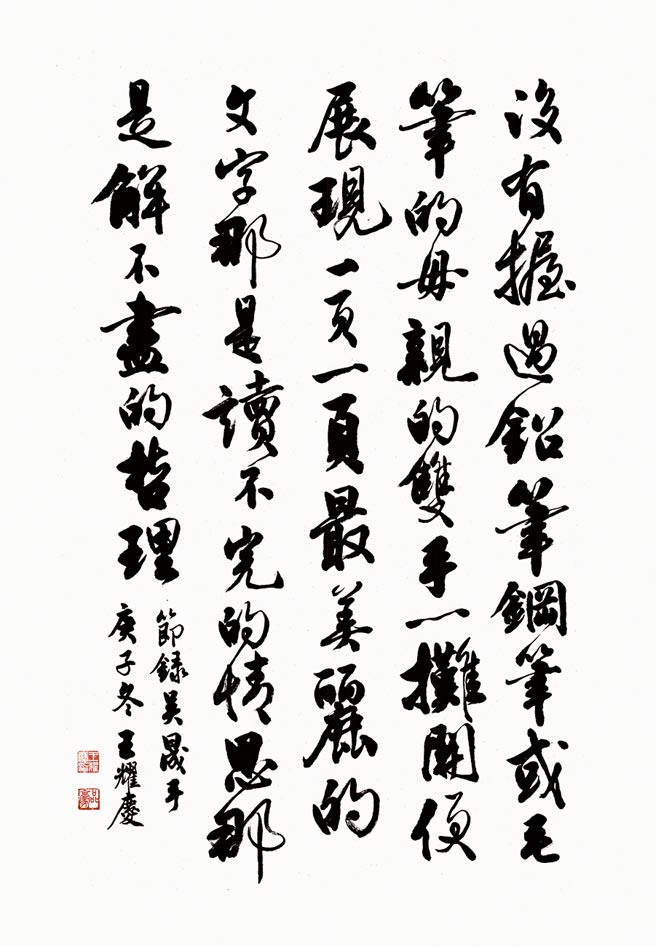 沒有握過鉛筆鋼筆或毛
筆的毋親的雙手一攤開便
展現一頁一頁最美麗的
文字那是讀不完的情思那
是解不盡的哲理
節錄吳晟手
庚子冬王耀慶